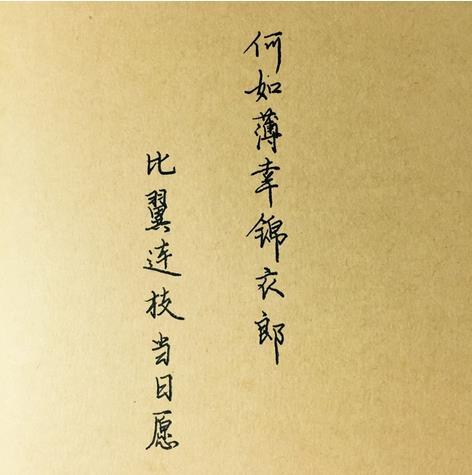 何如薄幸锦衣郎
比翼连枝当日愿